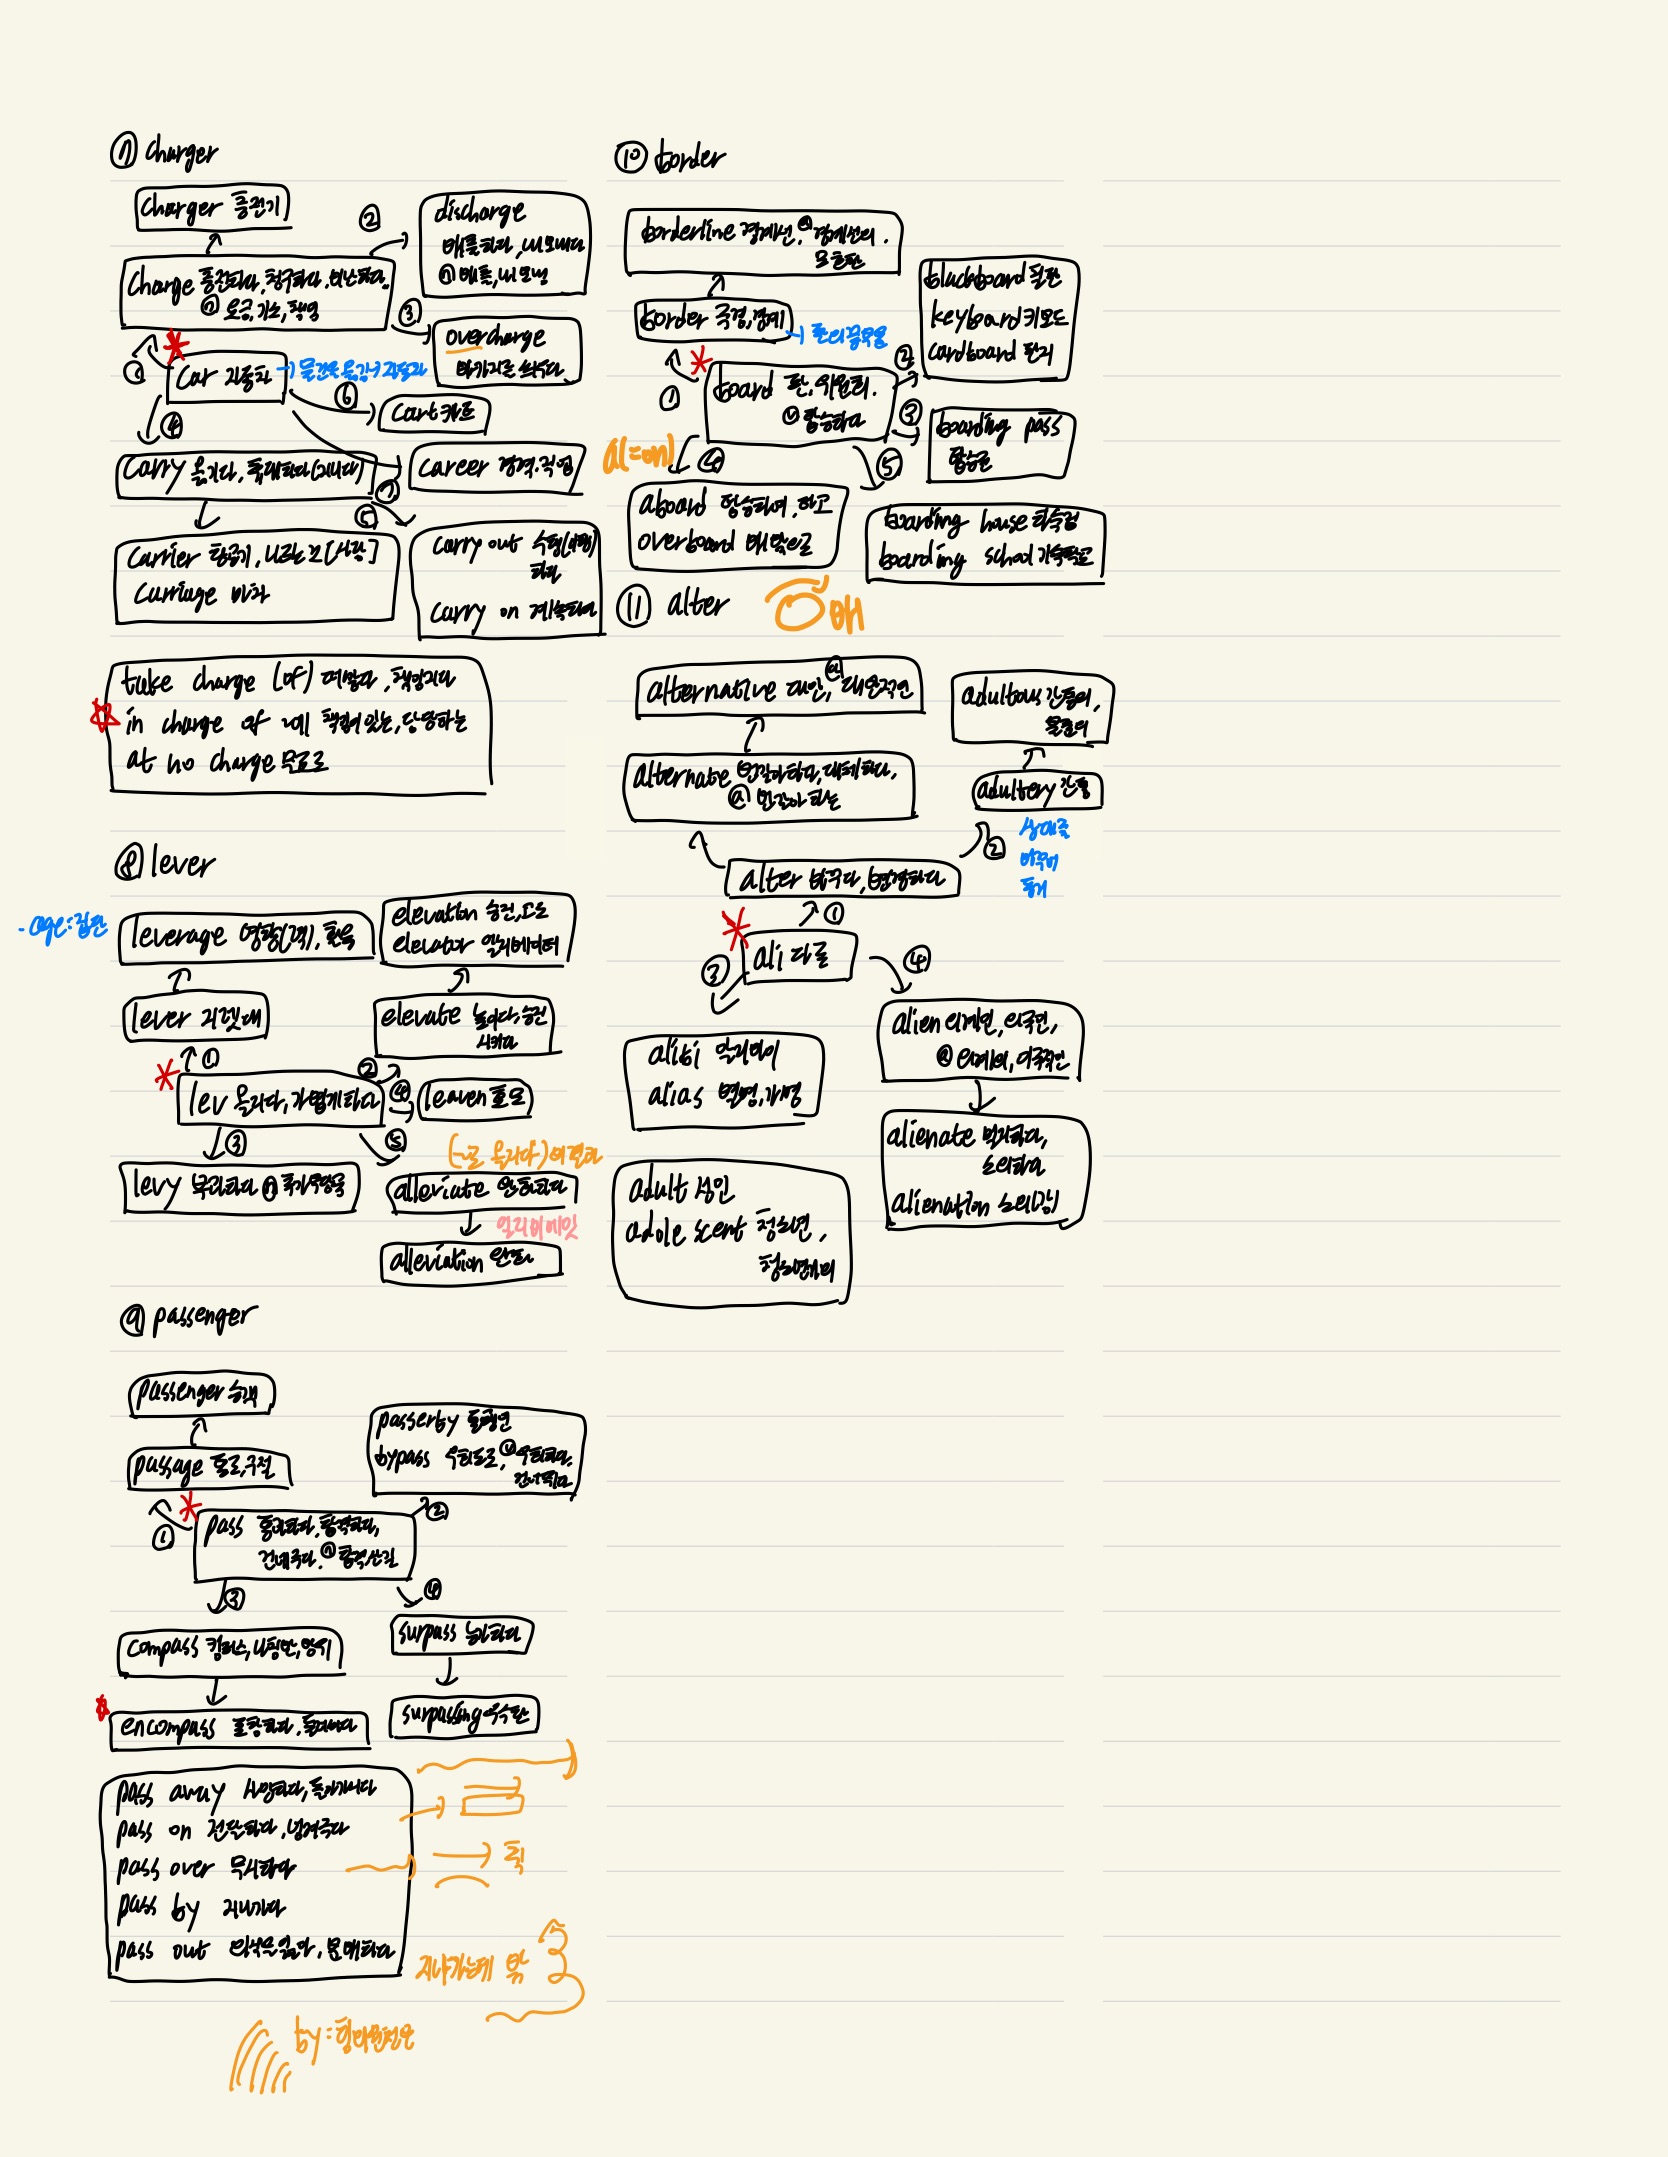 ⑦ charger
charger 충전기
②
discharge
배출하다, 내보내다
ⓝ 배출, 내보냄
charge 충전하다, 청구하다, 비난하다.
ⓝ 요금, 기소, 책임
③
overcharge
바가지를 씌우다
①
car 자동차
→ 물건을 옮겨서 전달하다
⑥
cart 카트
④
carry 옮기다, 휴대하다(지니다)
⑦
career 경력, 직업
⑤
carrier 항공기, 나르는 것[사람]
carriage 마차
carry out 수행(이행)
하다
carry on 계속하다
take charge (of) 떠맡다, 책임지다
in charge of ~에 책임이 있는, 담당하는
at no charge 무료로
⑧ lever
-age: 집단
leverage 영향(력), 활용
elevation 승진, 고도
elevator 엘리베이터
lever 지렛대
elevate 높이다, 승진
시키다
①
②
lev 올리다, 가볍게 하다
④
leaven 효모
③
⑤
(~로 올리다)
levy 부과하다 ⓝ 추가부담금
alleviate 완화하다
얼리비에잇
alleviation 완화
⑨ passenger
passenger 승객
passerby 통행인
bypass 우회도로, ⓥ 우회하다,
건너뛰다
passage 통로, 구절
①
②
pass 통과하다, 합격하다,
건네주다. ⓝ 합격, 산길
③
④
compass 컴퍼스, 나침반, 범위
surpass 능가하다
encompass 포함하다, 둘러싸다
surpassing 우수한
pass away 사망하다, 돌아가시다
pass on 전달하다, 넘겨주다
pass over 무시하다
휙
pass by 지나가다
pass out 의식을 잃다, 분배하다
지나가는데 밖
⑩ border
borderline 경계선, ⓐ 경계선의.
모호한
border 국경, 경계
→ 판의 끝부분
blackboard 칠판
keyboard 키보드
cardboard 판지
①
②
board 판, 위원회.
ⓥ 탑승하다
③
boarding pass
탑승권
a(=on)
④
⑤
aboard 탑승하여, 타고
overboard 배 밖으로
boarding house 하숙집
boarding school 기숙학교
⑪ alter
alternative 대안, ⓐ 대안적인
adulterous 간통의,
불륜의
alternate 번갈아하다, 대체하다,
ⓐ 번갈아 하는
adultery 간통
상대를
바꾸어
②
alter 바꾸다, 변경하다
①
ali 다른
③
④
alibi 알리바이
alias 별명, 가명
alien 외계인, 외국인,
ⓐ 외계의, 이국적인
alienate 멀리하다,
소외하다
alienation 소외(감)
adult 성인
adolescent 청소년,
청소년기의